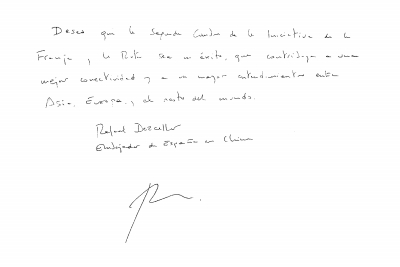 Deseo que la Segunda Cumbre de la Iniciativa de la
Franja y la Ruta sea un éxito, que contribuya a una
mejor conectividad y a un mayor entendimiento entre
Asia, Europa, y el resto del mundo.
Rafael Dezcallar
Embajador de España en China